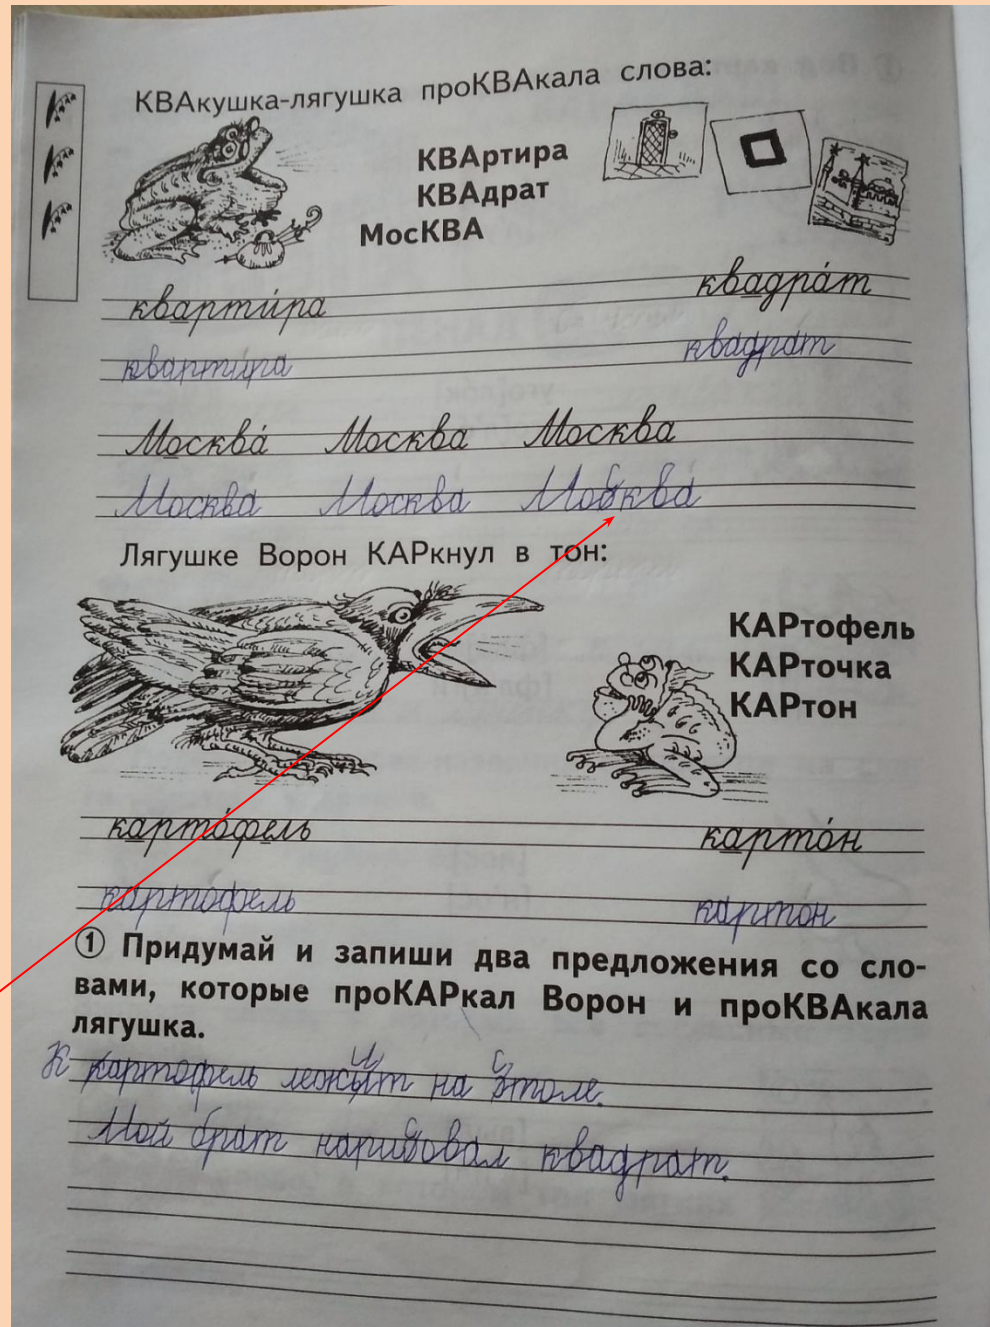 КВАкушка-лягушка проКВАкала слова:
КВАртира
КВАдрат
МосКВА
кварти́ра квадра́т
квартира квадрат
Москва́ Москва Москва
Москва Москва Москва
Лягушке Ворон КАРкнул в тон:
КАРтофель
КАРточка
КАРтон
карто́фель карто́н
картофель картон
① Придумай и запиши два предложения со сло-
вами, которые проКАРкал Ворон и проКВАкала
лягушка.
Картофель лежит на столе.
Мой брат нарисовал квадрат.